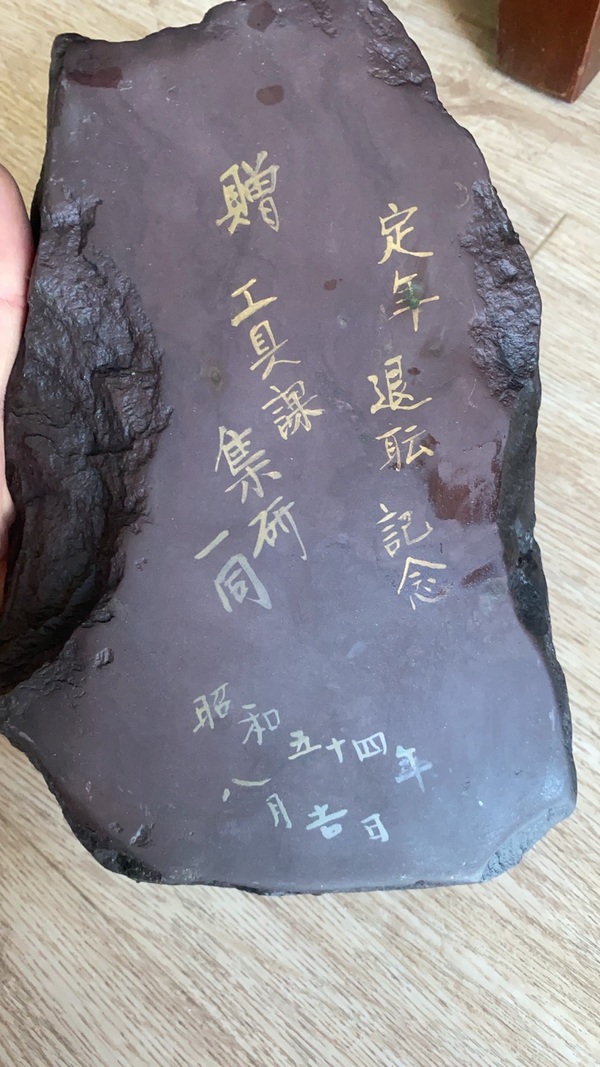 定年退耺記念
贈 工具課 集研一同
昭和五十四年
八月吉日